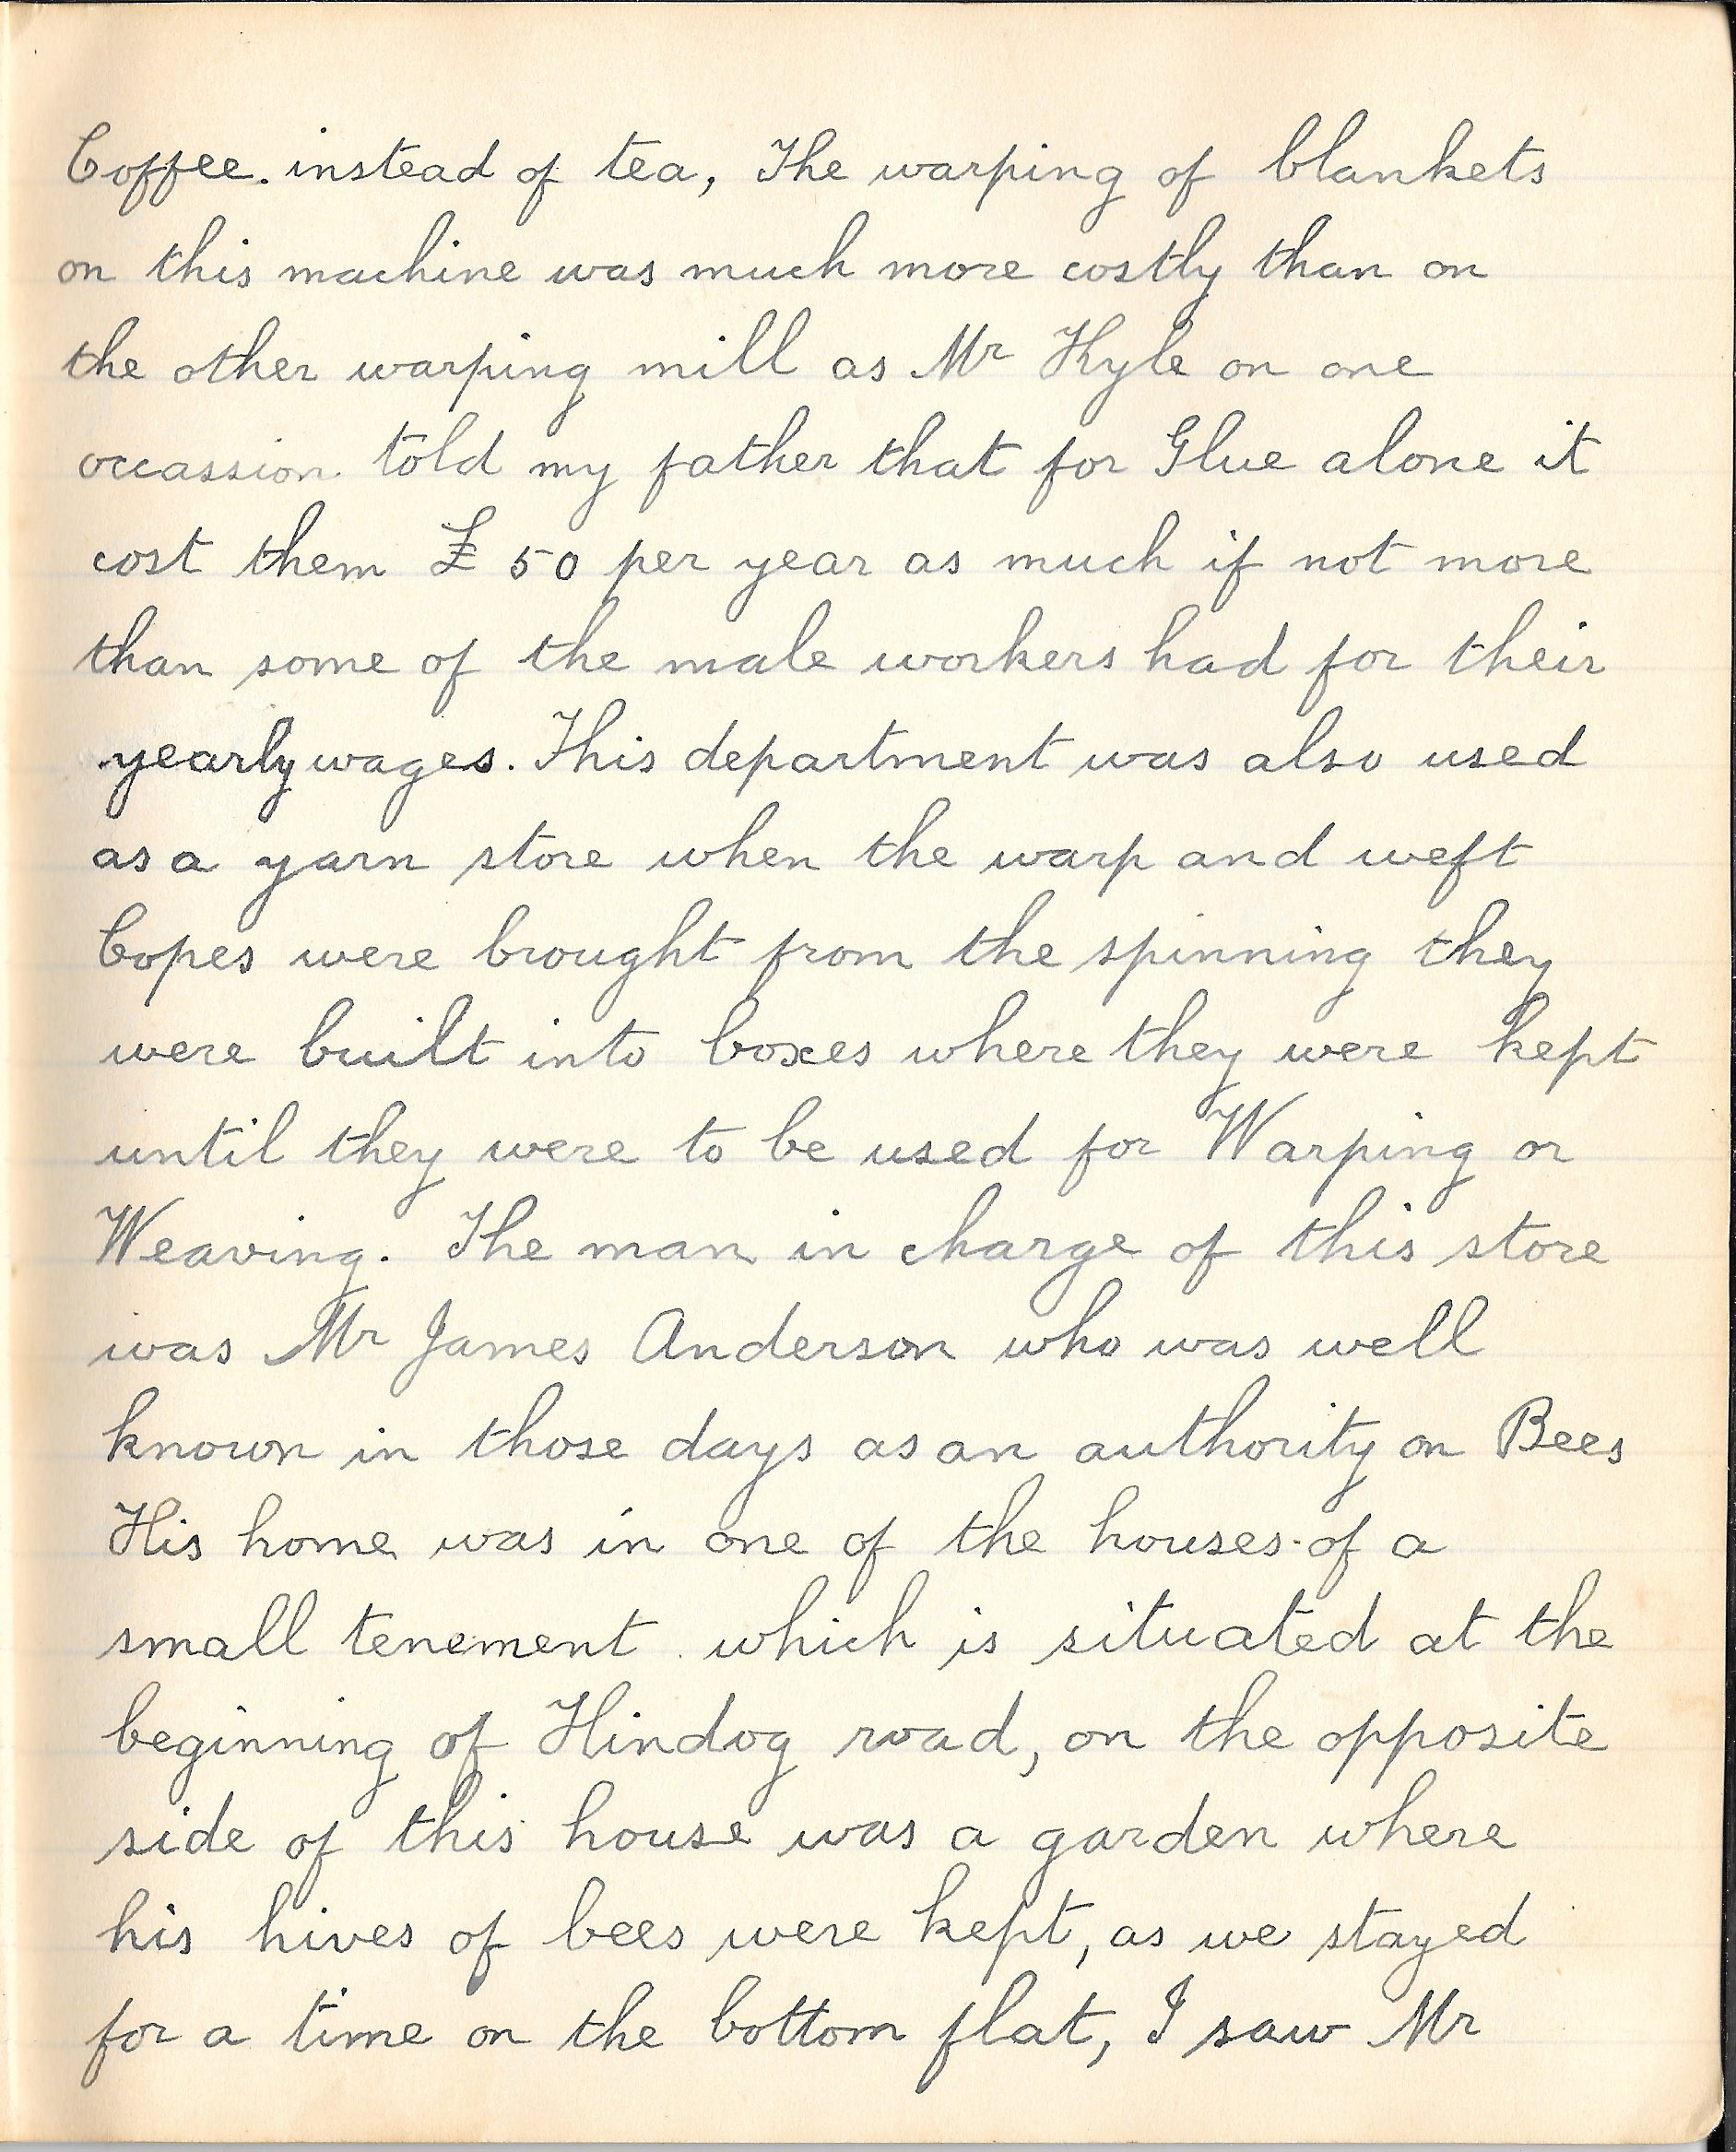 Coffee. instead of tea, The warping of blankets
on this machine was much more costly than on
the other warping mill as Mr Kyle on one
occassion told my father that for Glue alone it
cost them £ 50 per year as much if not more
than some of the male workers had for their
yearly wages. This department was also used
as a yarn store when the warp and weft
Copes were brought from the spinning they
were built into boxes where they were kept
until they were to be used for Warping or
Weaving. The man in charge of this store
was Mr James Anderson who was well
known in those days as an authority on Bees
His home was in one of the houses of a
small tenement which is situated at the
beginning of Hindog road, on the opposite
side of this house was a garden where
his hives of bees were kept, as we stayed
for a time on the bottom flat, I saw Mr